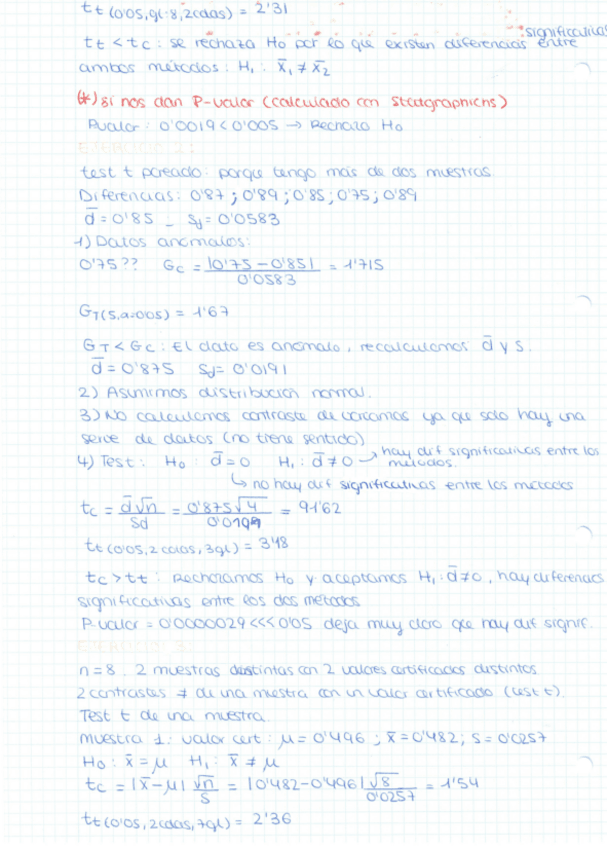 tt (0'05, gl=8, 2colas) = 2'31
significativas
tt < tc : se rechaza Ho por lo que existen diferencias entre
ambos métodos : H1 : x̄1 ≠ x̄2
(*) si nos dan P-valor (calculado con Statgraphics)
Pvalor : 0'0019 < 0'005 → Rechazo Ho
EJERCICIO 2:
test t pareado : porque tengo más de dos muestras
Diferencias : 0'87 ; 0'89 ; 0'85 ; 0'75 ; 0'89
d̄ = 0'85 _ Sd = 0'0583
1) Datos anómalos:
0'75?? Gc = |0'75 - 0'85| / 0'0583 = 1'715
GT(5, α=0'05) = 1'67
GT < Gc : El dato es anómalo, recalculamos d̄ y s.
d̄ = 0'875 Sd = 0'0191
2) Asumimos distribución normal.
3) No calculamos contraste de varianzas ya que solo hay una
serie de datos (no tiene sentido)
4) Test : Ho : d̄ = 0 H1 : d̄ ≠ 0 → hay dif significativas entre los
métodos.
↳ no hay dif significativas entre los métodos
tc = d̄√n / Sd = 0'875√4 / 0'0191 = 91'62
tt (0'05, 2 colas, 3gl) = 3'18
tc > tt : Rechazamos Ho y aceptamos H1 : d̄ ≠ 0, hay diferencias
significativas entre los dos métodos
P-valor = 0'0000029 <<< 0'05 deja muy claro que hay dif signif.
EJERCICIO 3:
n = 8 . 2 muestras distintas con 2 valores certificados distintos
2 contrastes ≠ de una muestra con un valor certificado (test t).
Test t de una muestra
Muestra 1 : valor cert : μ = 0'496 ; x̄ = 0'482 ; s = 0'0257
Ho : x̄ = μ H1 : x̄ ≠ μ
tc = |x̄ - μ| √n / s = |0'482 - 0'496| √8 / 0'0257 = 1'54
tt (0'05, 2colas, 7gl) = 2'36